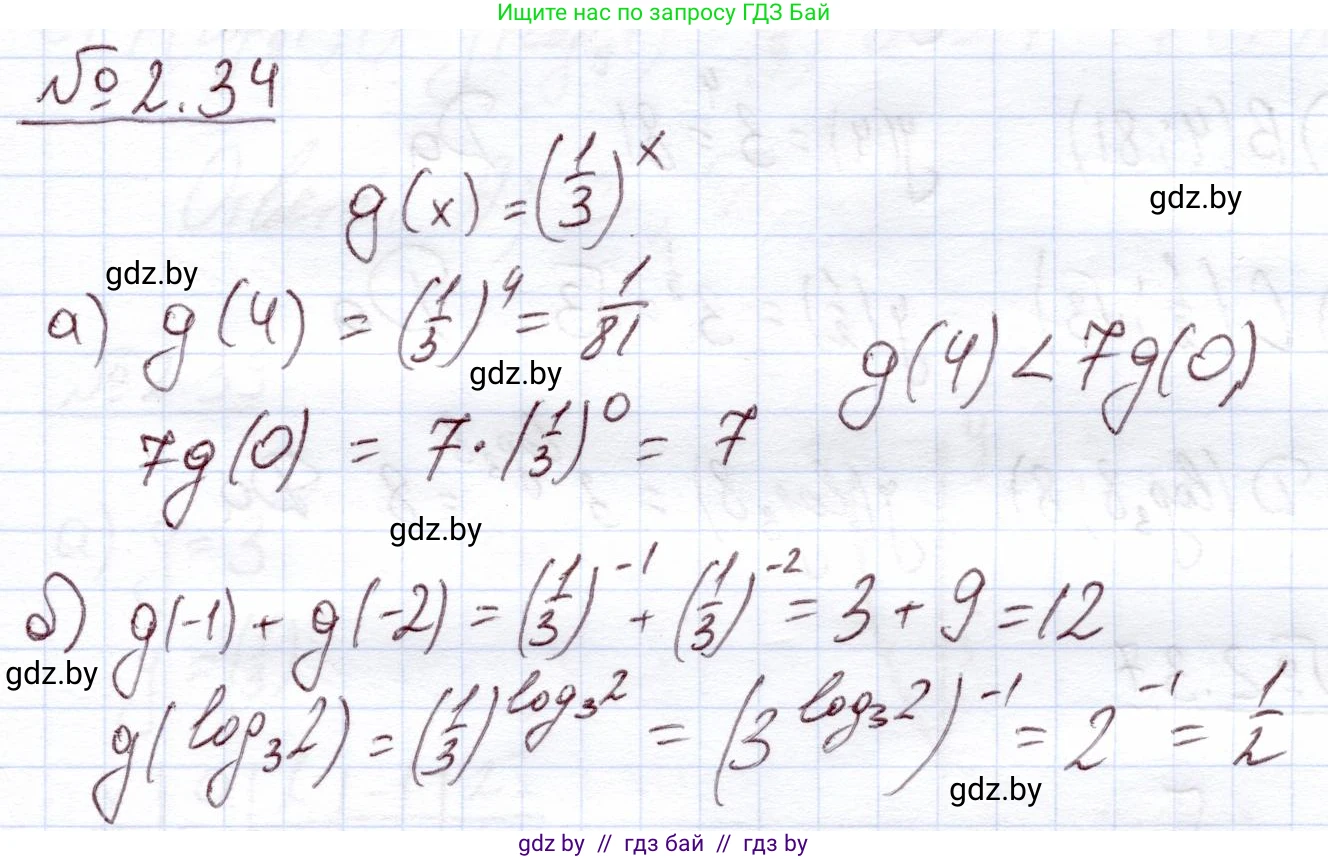 Ищите нас по запросу ГДЗ Бай
№ 2.34
g(x) = (1/3)^x
gdz.by
gdz.by
а) g(4) = (1/3)^4 = 1/81
g(4) < 7g(0)
gdz.by
7g(0) = 7·(1/3)^0 = 7
gdz.by
б) g(-1) + g(-2) = (1/3)^-1 + (1/3)^-2 = 3 + 9 = 12
gdz.by
g(log₃2) = (1/3)^log₃2 = (3^log₃2)^-1 = 2^-1 = 1/2
gdz.by
gdz.by // гдз бай // gdz.by